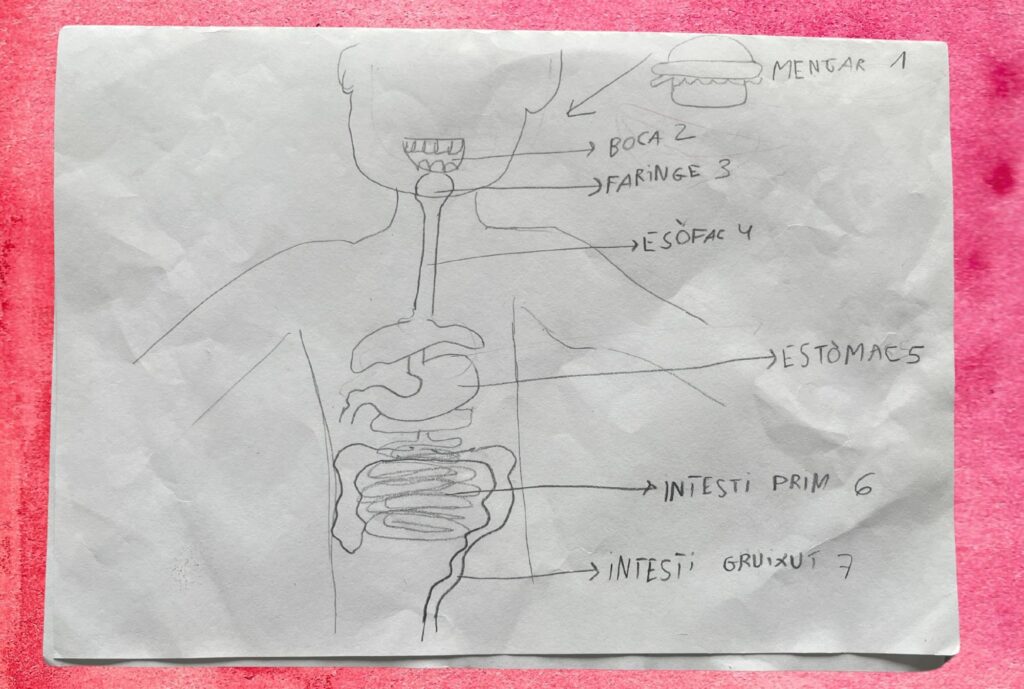 MENTAR 1
BOCA 2
FARINGE 3
ESÒFAC 4
ESTÒMAC 5
INTESTI PRIM 6
INTESTI GRUIXUT 7